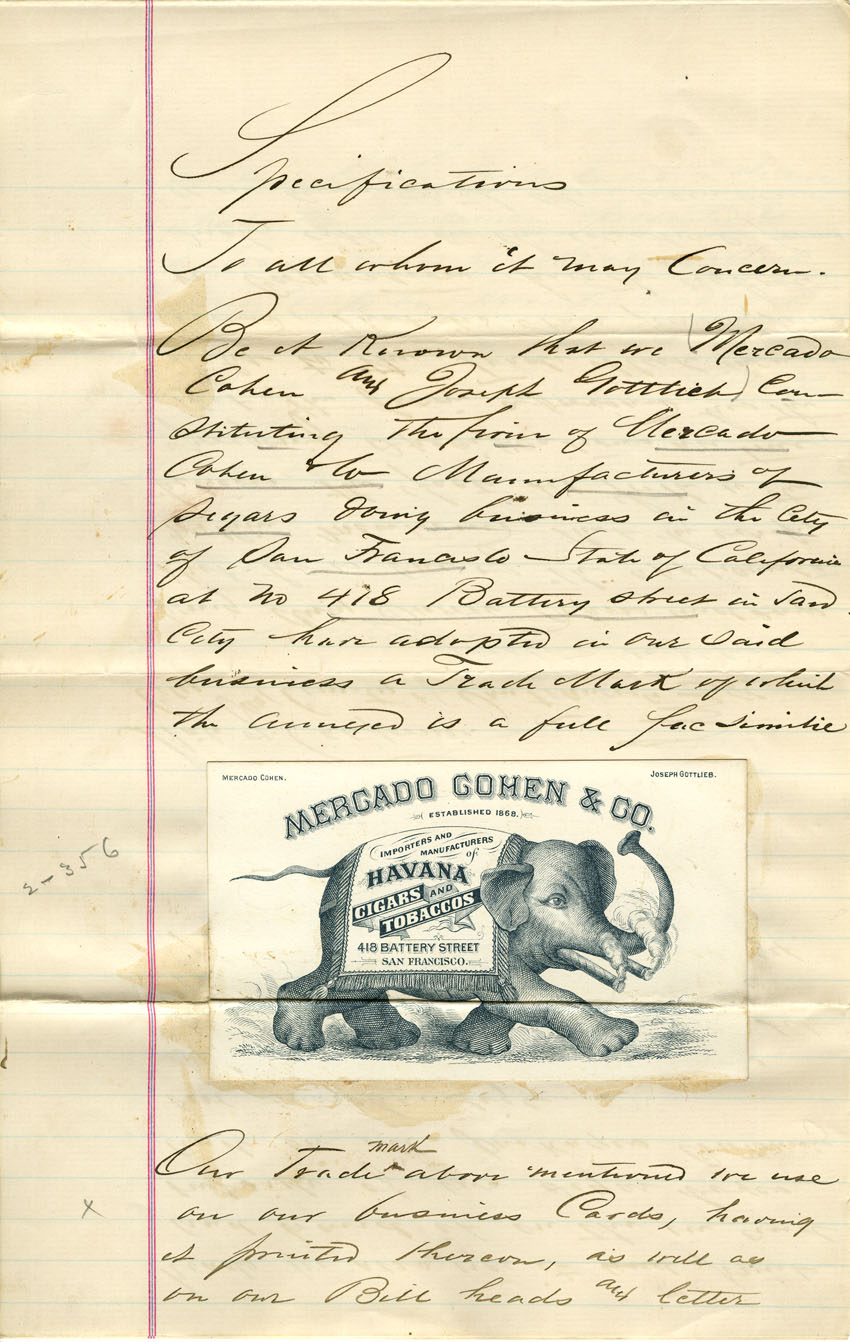 Specifications
To all whom it may Concern.
Be it Known that we (Mercado
Cohen and Joseph Gottlieb) Con-
stituting the firm of Mercado
Cohen & Co Manufacturers of
segars doing business in the City
of San Francisco State of California
at No 418 Battery street in said
City have adopted in our said
business a Trade Mark of which
the annexed is a full fac simile
MERCADO COHEN.
JOSEPH GOTTLIEB.
MERCADO COHEN & CO.
ESTABLISHED 1868.
IMPORTERS AND
MANUFACTURERS
of
HAVANA
CIGARS AND
TOBACCOS
418 BATTERY STREET
SAN FRANCISCO.
2-356
Our Trade mark above mentioned we use
x
on our business Cards, having
it printed thereon, as well as
on our Bill heads and letter